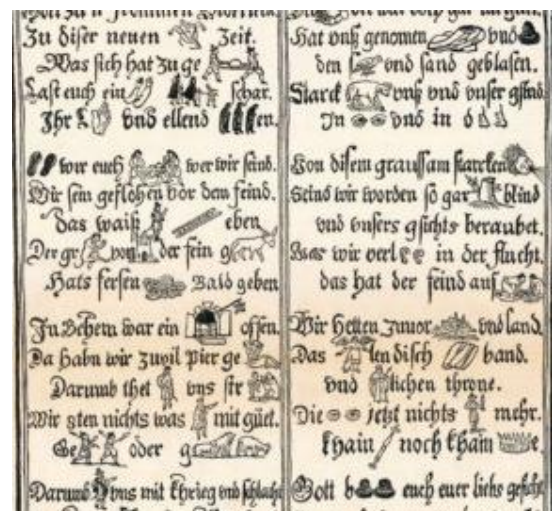 Zu diser neuen Zeit.
Was sich hat zu ge
Last euch ein schar.
Ihr und ellend en.
wir euch wer wir seind.
Wir sein geflohen vor dem feind.
das waiß eben
Der gr von der sein g
Hats fersen Bald geben
In Behem war ein offen.
Da habn wir zuvil Pier ge
Darumb thet uns str
Wir ten nichts was mit güet.
Ge oder g
Darumb uns mit khrieg und schlacht
Hat unß genomen und
den und sand geblasen.
Starck unß und unser gsind
In und in d
Von disem graussam starcken
Seind wir worden so gar blind
und unsers gsichts beraubet.
Was wir verl in der flucht.
das hat der feind auf
Wir hetten zuuor und land.
Das len disch band.
und lichen throne.
Die jetzt nichts mehr.
khain noch kham e.
Gott b euch euer liebs gesicht